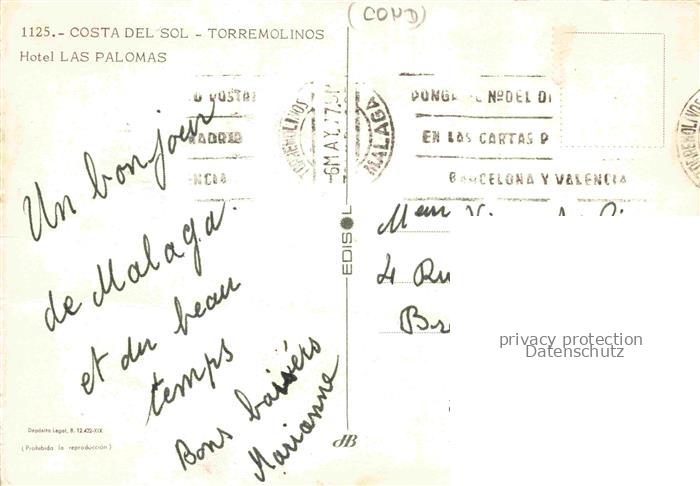 (COND)
1125.- COSTA DEL SOL - TORREMOLINOS
Hotel LAS PALOMAS
TORREMOLINOS
-6 MAY. 77
MALAGA
O POSTAL
MADRID
NCIA
PONGA EL NºDEL DI
EN LAS CARTAS P
BARCELONA Y VALENCIA
TORREMOLINOS
Un bonjour
de Malaga.
et du beau
temps
Bons baisers
Marianne
EDISOL
Meur
4 Ru
Br
privacy protection
Datenschutz
Depósito Legal, B. 12.422-XIX
(Prohibida la reproducción)